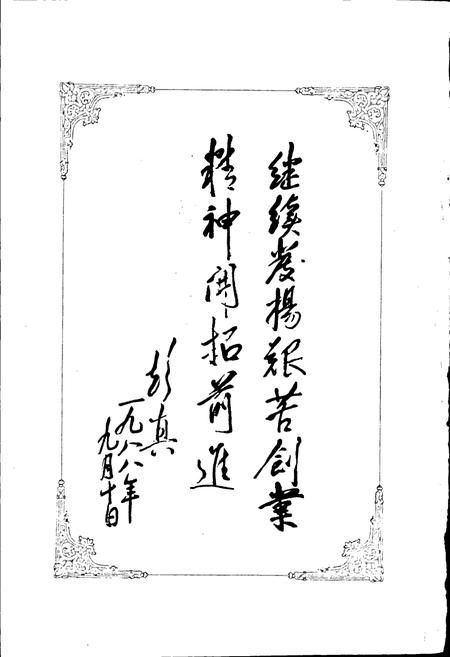 继续发揚艰苦创業
精神開拓前進
彭真
一九八八年
九月十日